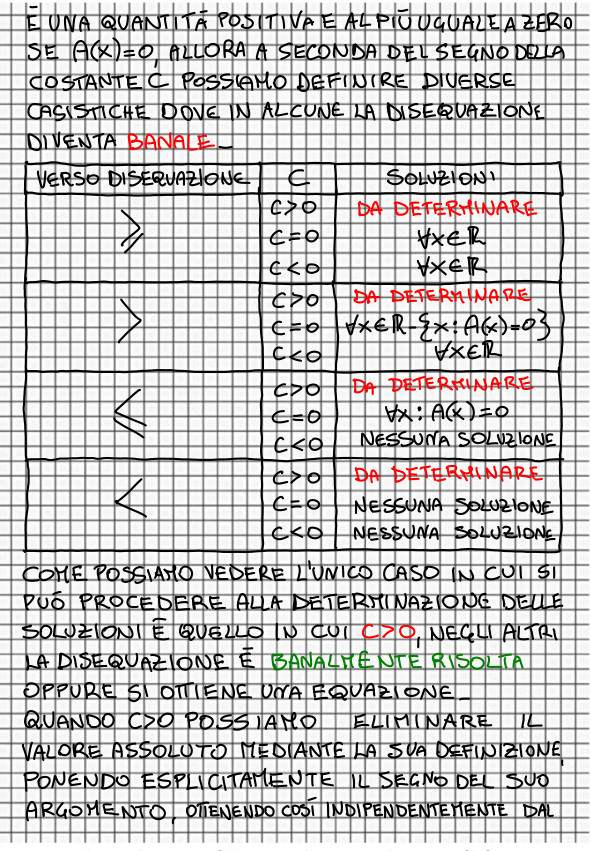 È UNA QUANTITÀ POSITIVA E AL PIÙ UGUALE A ZERO
SE A(x)=0, ALLORA A SECONDA DEL SEGNO DELLA
COSTANTE C POSSIAMO DEFINIRE DIVERSE
CASISTICHE DOVE IN ALCUNE LA DISEQUAZIONE
DIVENTA BANALE_
VERSO DISEQUAZIONE C SOLUZIONI
≥ C>0 DA DETERMINARE
C=0 ∀x∈ℝ
C<0 ∀x∈ℝ
> C>0 DA DETERMINARE
C=0 ∀x∈ℝ-{x:A(x)=0}
C<0 ∀x∈ℝ
≤ C>0 DA DETERMINARE
C=0 ∀x:A(x)=0
C<0 NESSUNA SOLUZIONE
< C>0 DA DETERMINARE
C=0 NESSUNA SOLUZIONE
C<0 NESSUNA SOLUZIONE
COME POSSIAMO VEDERE L'UNICO CASO IN CUI SI
PUÒ PROCEDERE ALLA DETERMINAZIONE DELLE
SOLUZIONI È QUELLO IN CUI C>0, NEGLI ALTRI
LA DISEQUAZIONE È BANALMENTE RISOLTA
OPPURE SI OTTIENE UNA EQUAZIONE_
QUANDO C>0 POSSIAMO ELIMINARE IL
VALORE ASSOLUTO MEDIANTE LA SUA DEFINIZIONE,
PONENDO ESPLICITAMENTE IL SEGNO DEL SUO
ARGOMENTO, OTTENENDO COSÌ INDIPENDENTEMENTE DAL